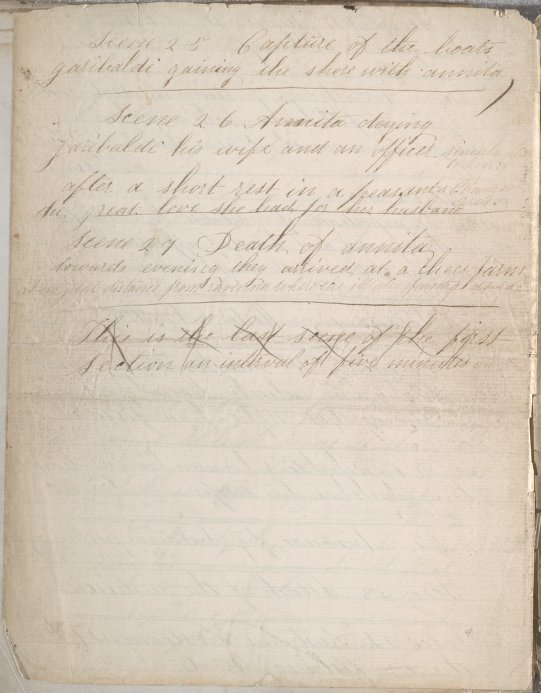 Scene 25 Capture of the boats
garibaldi gaining the shore with annita
Scene 26 Annita deying
garibaldi his wife and an officer
after a short rest in a peasants
the great love she had for her husband
Scene 27 Death of annita
towards evening they arrived at a chees farm
at no great distance from ravenna where
This is the last scene of the first
Section an interval of five minutes